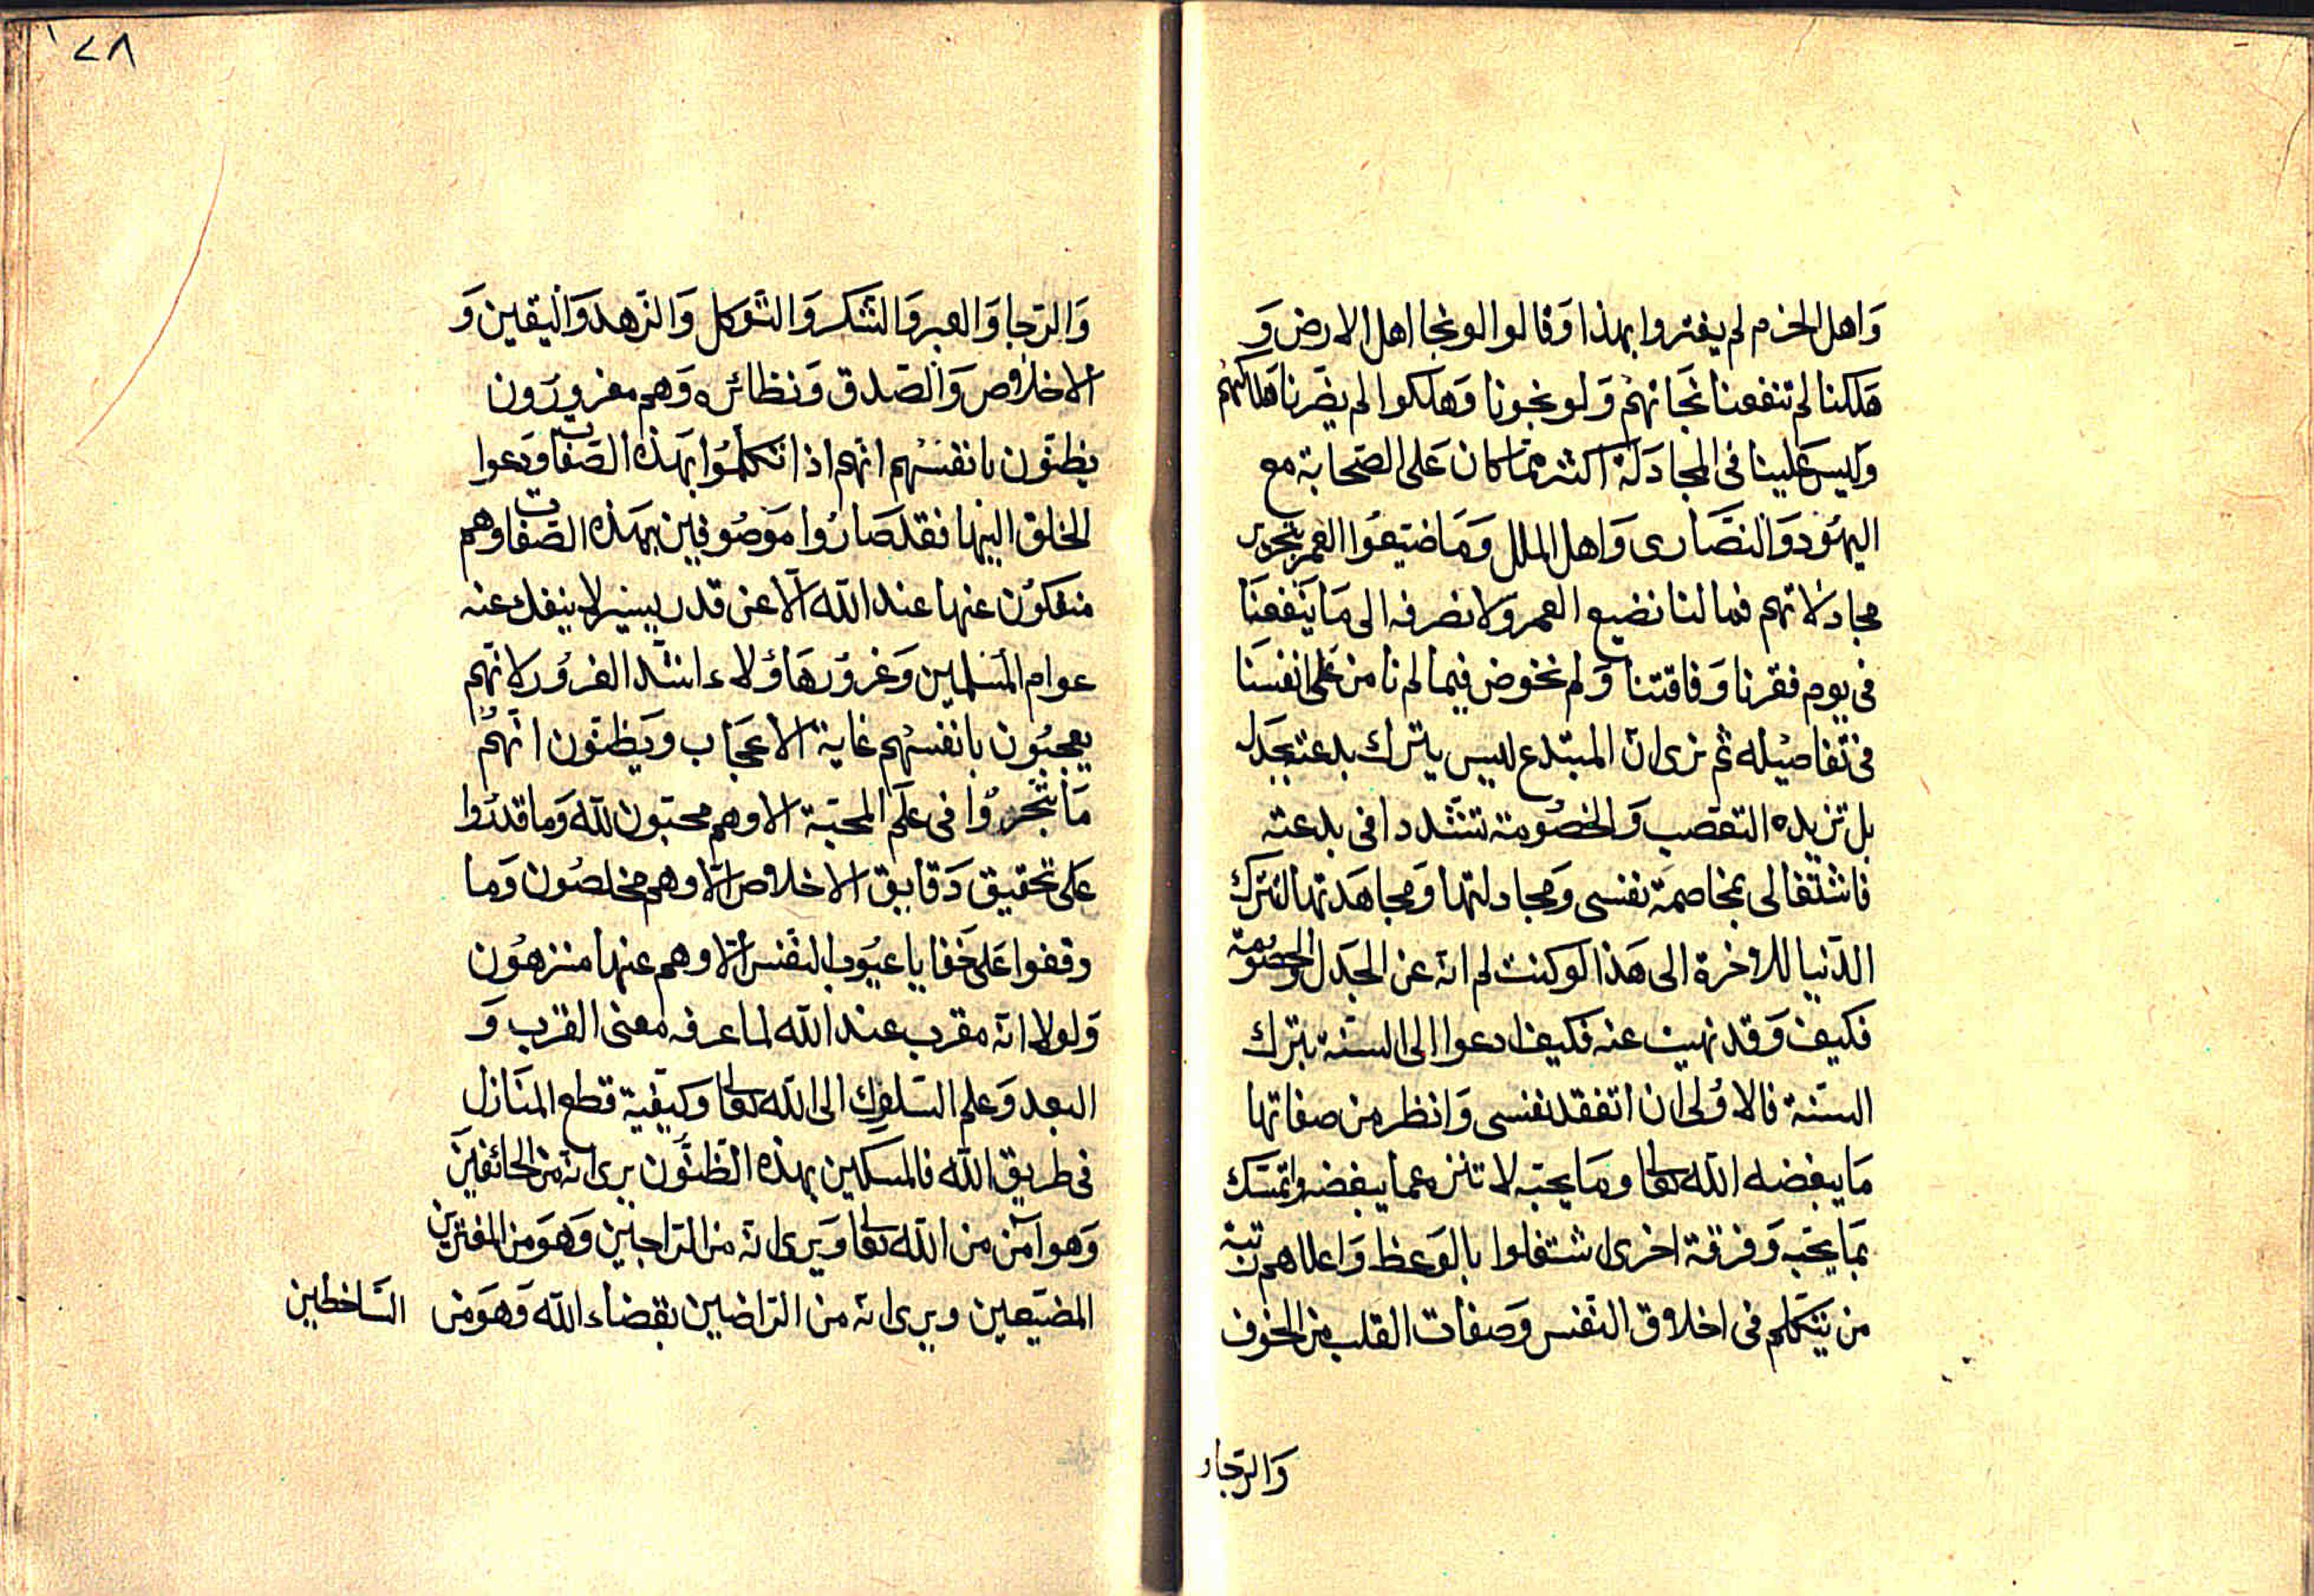 واهل الحزم لم يغتروا بهذا وقالوا لو نجا اهل الارض و
هلكنا لم تنفعنا نجاتهم ولو نجونا وهلكوا لم يضرنا هلاكهم
وليس علينا فى المجادلة اكثر مما كان على الصحابة مع
اليهود والنصارى واهل الملل وما ضيعوا العمر بتحرير
مجادلاتهم فما لنا نضيع العمر ولا نصرفه الى ما ينفعنا
فى يوم فقرنا وفاقتنا ولم نخوض فيما لم نامن على انفسنا
فى تفاصيله ثم نرى ان المبتدع ليس يترك بدعته بجدل
بل تزيده التعصب والخصومة تشددا فى بدعته
فاشتغالى بمخاصمة نفسى ومجادلتها ومجاهدتها لتترك
الدنيا للاخرة الى هذا لو كنت لم انه عن الجدل والخصومة
فكيف وقد نهيت عنه فكيف ادعوا الى السنة بترك
السنة فالاولى ان اتفقد نفسى وانظر من صفاتها
ما يبغضه الله تعالى وما يحبه لا تنزه عما يبغضه واتمسك
بما يحبه وفرقة اخرى اشتغلوا بالوعظ واعلاهم رتبة
من يتكلم فى اخلاق النفس وصفات القلب من الخوف
والرجاء
١٢٨
والرجا والصبر والشكر والتوكل والزهد واليقين و
الاخلاص والصدق ونظائره وهم مغرورون
يظنون بانفسهم انهم اذا تكلموا بهذه الصفات ودعوا
الخلق اليها فقد صاروا موصوفين بهذه الصفات وهم
منفكون عنها عند الله الا عن قدر يسير لا ينفك عنه
عوام المسلمين وغرور هاؤلاء اشد الغرور لانهم
يعجبون بانفسهم غاية الاعجاب ويظنون انهم
ما تبحروا فى علم المحبة الا وهم محبون لله وما قدروا
على تحقيق دقايق الاخلاص الا وهم مخلصون وما
وقفوا على خفايا عيوب النفس الا وهم عنها منزهون
ولولا انه مقرب عند الله لما عرفه معنى القرب و
البعد وعلم السلوك الى الله تعالى وكيفية قطع المنازل
فى طريق الله فالمسكين بهذه الظنون يرى انه من الخائفين
وهو آمن من الله تعالى ويرى انه من الراجين وهو من المغترين
المضيعين ويرى انه من الراضين بقضاء الله وهو من الساخطين